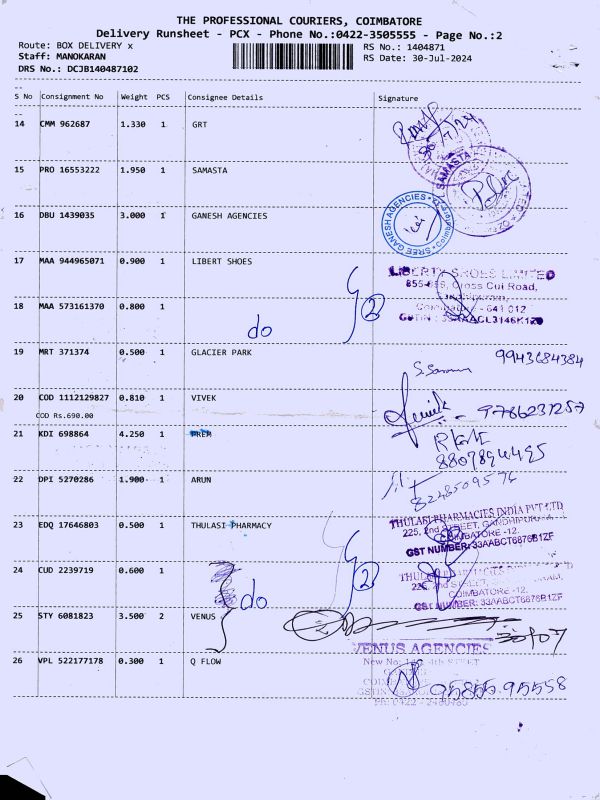 THE PROFESSIONAL COURIERS, COIMBATORE
Delivery Runsheet - PCX - Phone No.:0422-3505555 - Page No.:2
Route: BOX DELIVERY x RS No.: 1404871
Staff: MANOKARAN RS Date: 30-Jul-2024
DRS No.: DCJB140487102
S No Consignment No Weight PCS Consignee Details Signature
14 CMM 962687 1.330 1 GRT
15 PRO 16553222 1.950 1 SAMASTA
SAMASTA
16 DBU 1439035 3.000 1 GANESH AGENCIES
SREE GANESH AGENCIES
17 MAA 944965071 0.900 1 LIBERT SHOES
LIBERTY SHOES LIMITED
Cross Cut Road,
641 012
18 MAA 573161370 0.800 1
do 2
19 MRT 371374 0.500 1 GLACIER PARK
9943684384
20 COD 1112129827 0.810 1 VIVEK
COD Rs.690.00
9786231257
21 KDI 698864 4.250 1 PREM
22 DPI 5270286 1.900 1 ARUN
8248509576
23 EDQ 17646803 0.500 1 THULASI PHARMACY
THULASI PHARMACIES INDIA PVT LTD
225, 2nd STREET, GANDHIPURAM
COIMBATORE -12.
GST NUMBER: 33AABCT6876B1ZF
24 CUD 2239719 0.600 1
do 2
COIMBATORE -12.
GST NUMBER: 33AABCT6876B1ZF
25 STY 6081823 3.500 2 VENUS
VENUS AGENCIES
26 VPL 522177178 0.300 1 Q FLOW
95855 95558